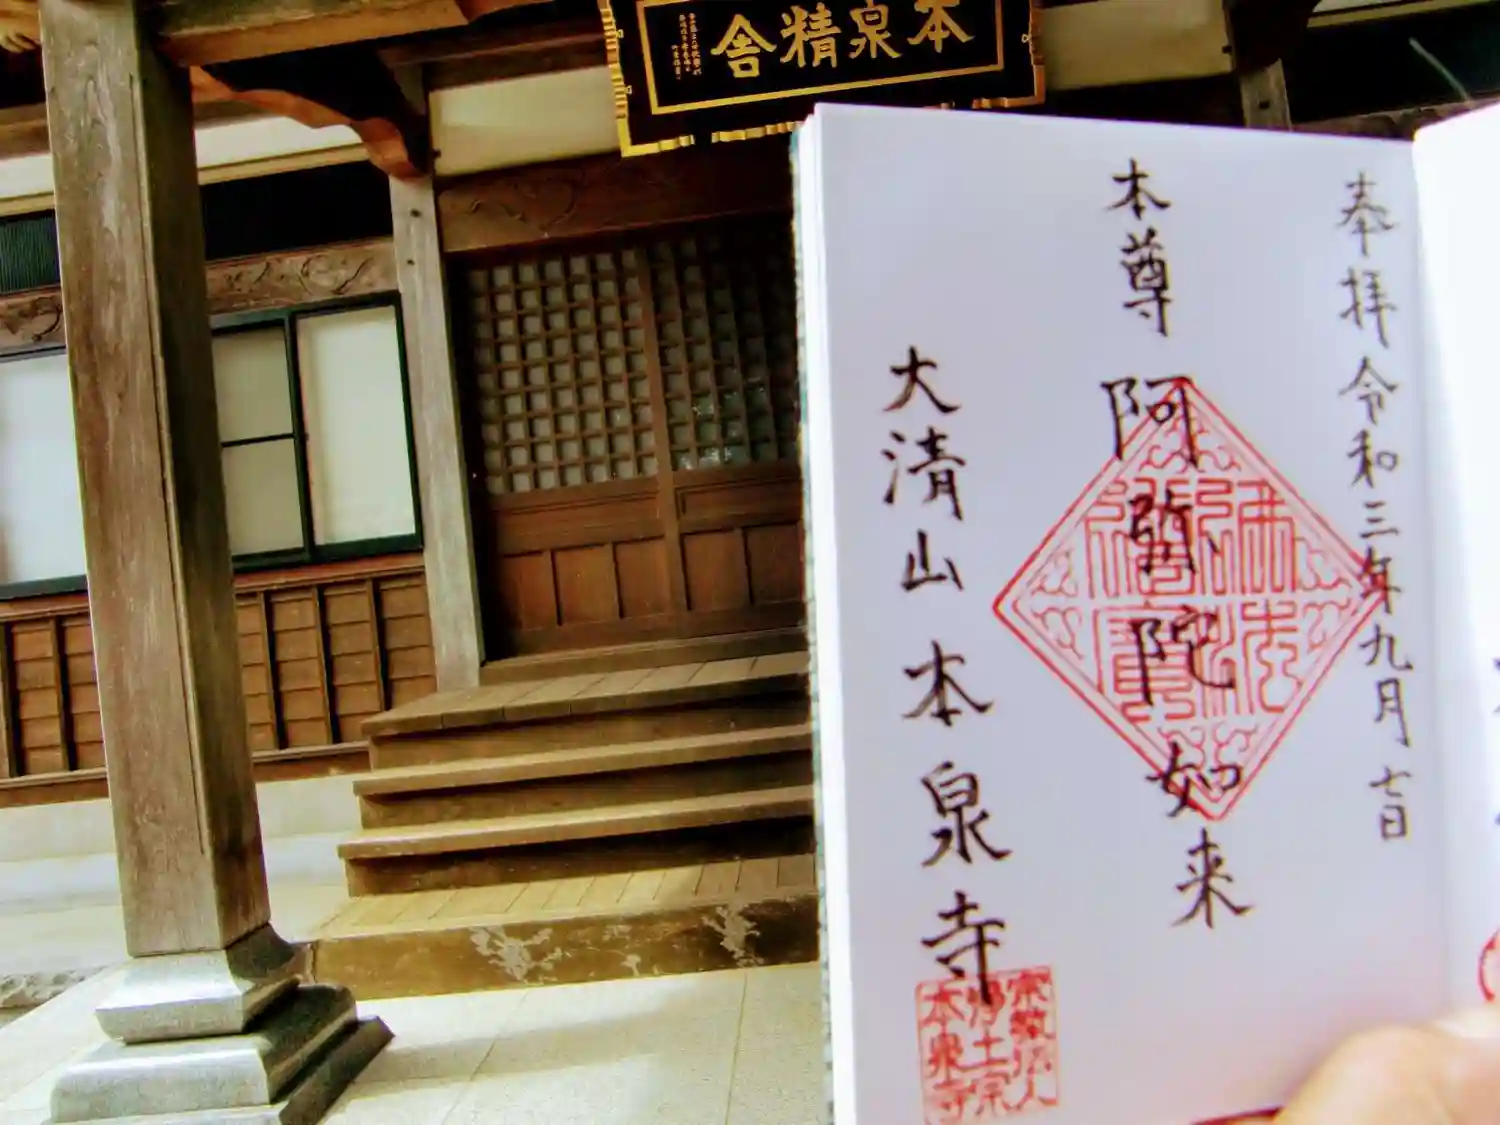 本泉精舍
奉拝 令和三年九月七日
本尊 阿弥陀如来
大清山 本泉寺
佛法
僧寶
浄土宗
本泉寺